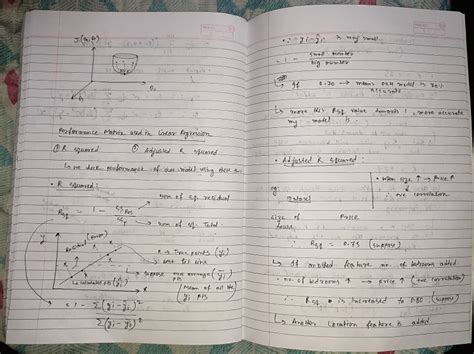 J(θ0, θ1)
θ1
Performance Matrix used in Linear Regression
① R squared ② Adjusted R squared
↳ we check performance of our model using these two
• R squared
Rsq = 1 - SSRes
SST
sum of sq. residual
sum of sq. Total
y
Residual (error)
x → True points (yi)
best fit line
suppose average (ȳi)
(Mean of all the yi pts
= 1 - Σ(yi - ŷi)²
Σ(yi - ȳi)²
is very small
1 - small number
big number
↳ If 0.70 → means our model is 70%
accurate
↳ more this Rsq value towards 1, more accurate
my model is
• Adjusted R squared
eg:
• when size ↑ → Price ↑
+ve correlation
size of Price
house
∴ Rsq = 0.75 (suppose)
↳ If another feature no. of bedrooms added
∴ no. of bedrooms ↑ → price ↑ (+ve correlation)
∴ Rsq is increased to 0.80 (suppose)
↳ Another Location feature is added